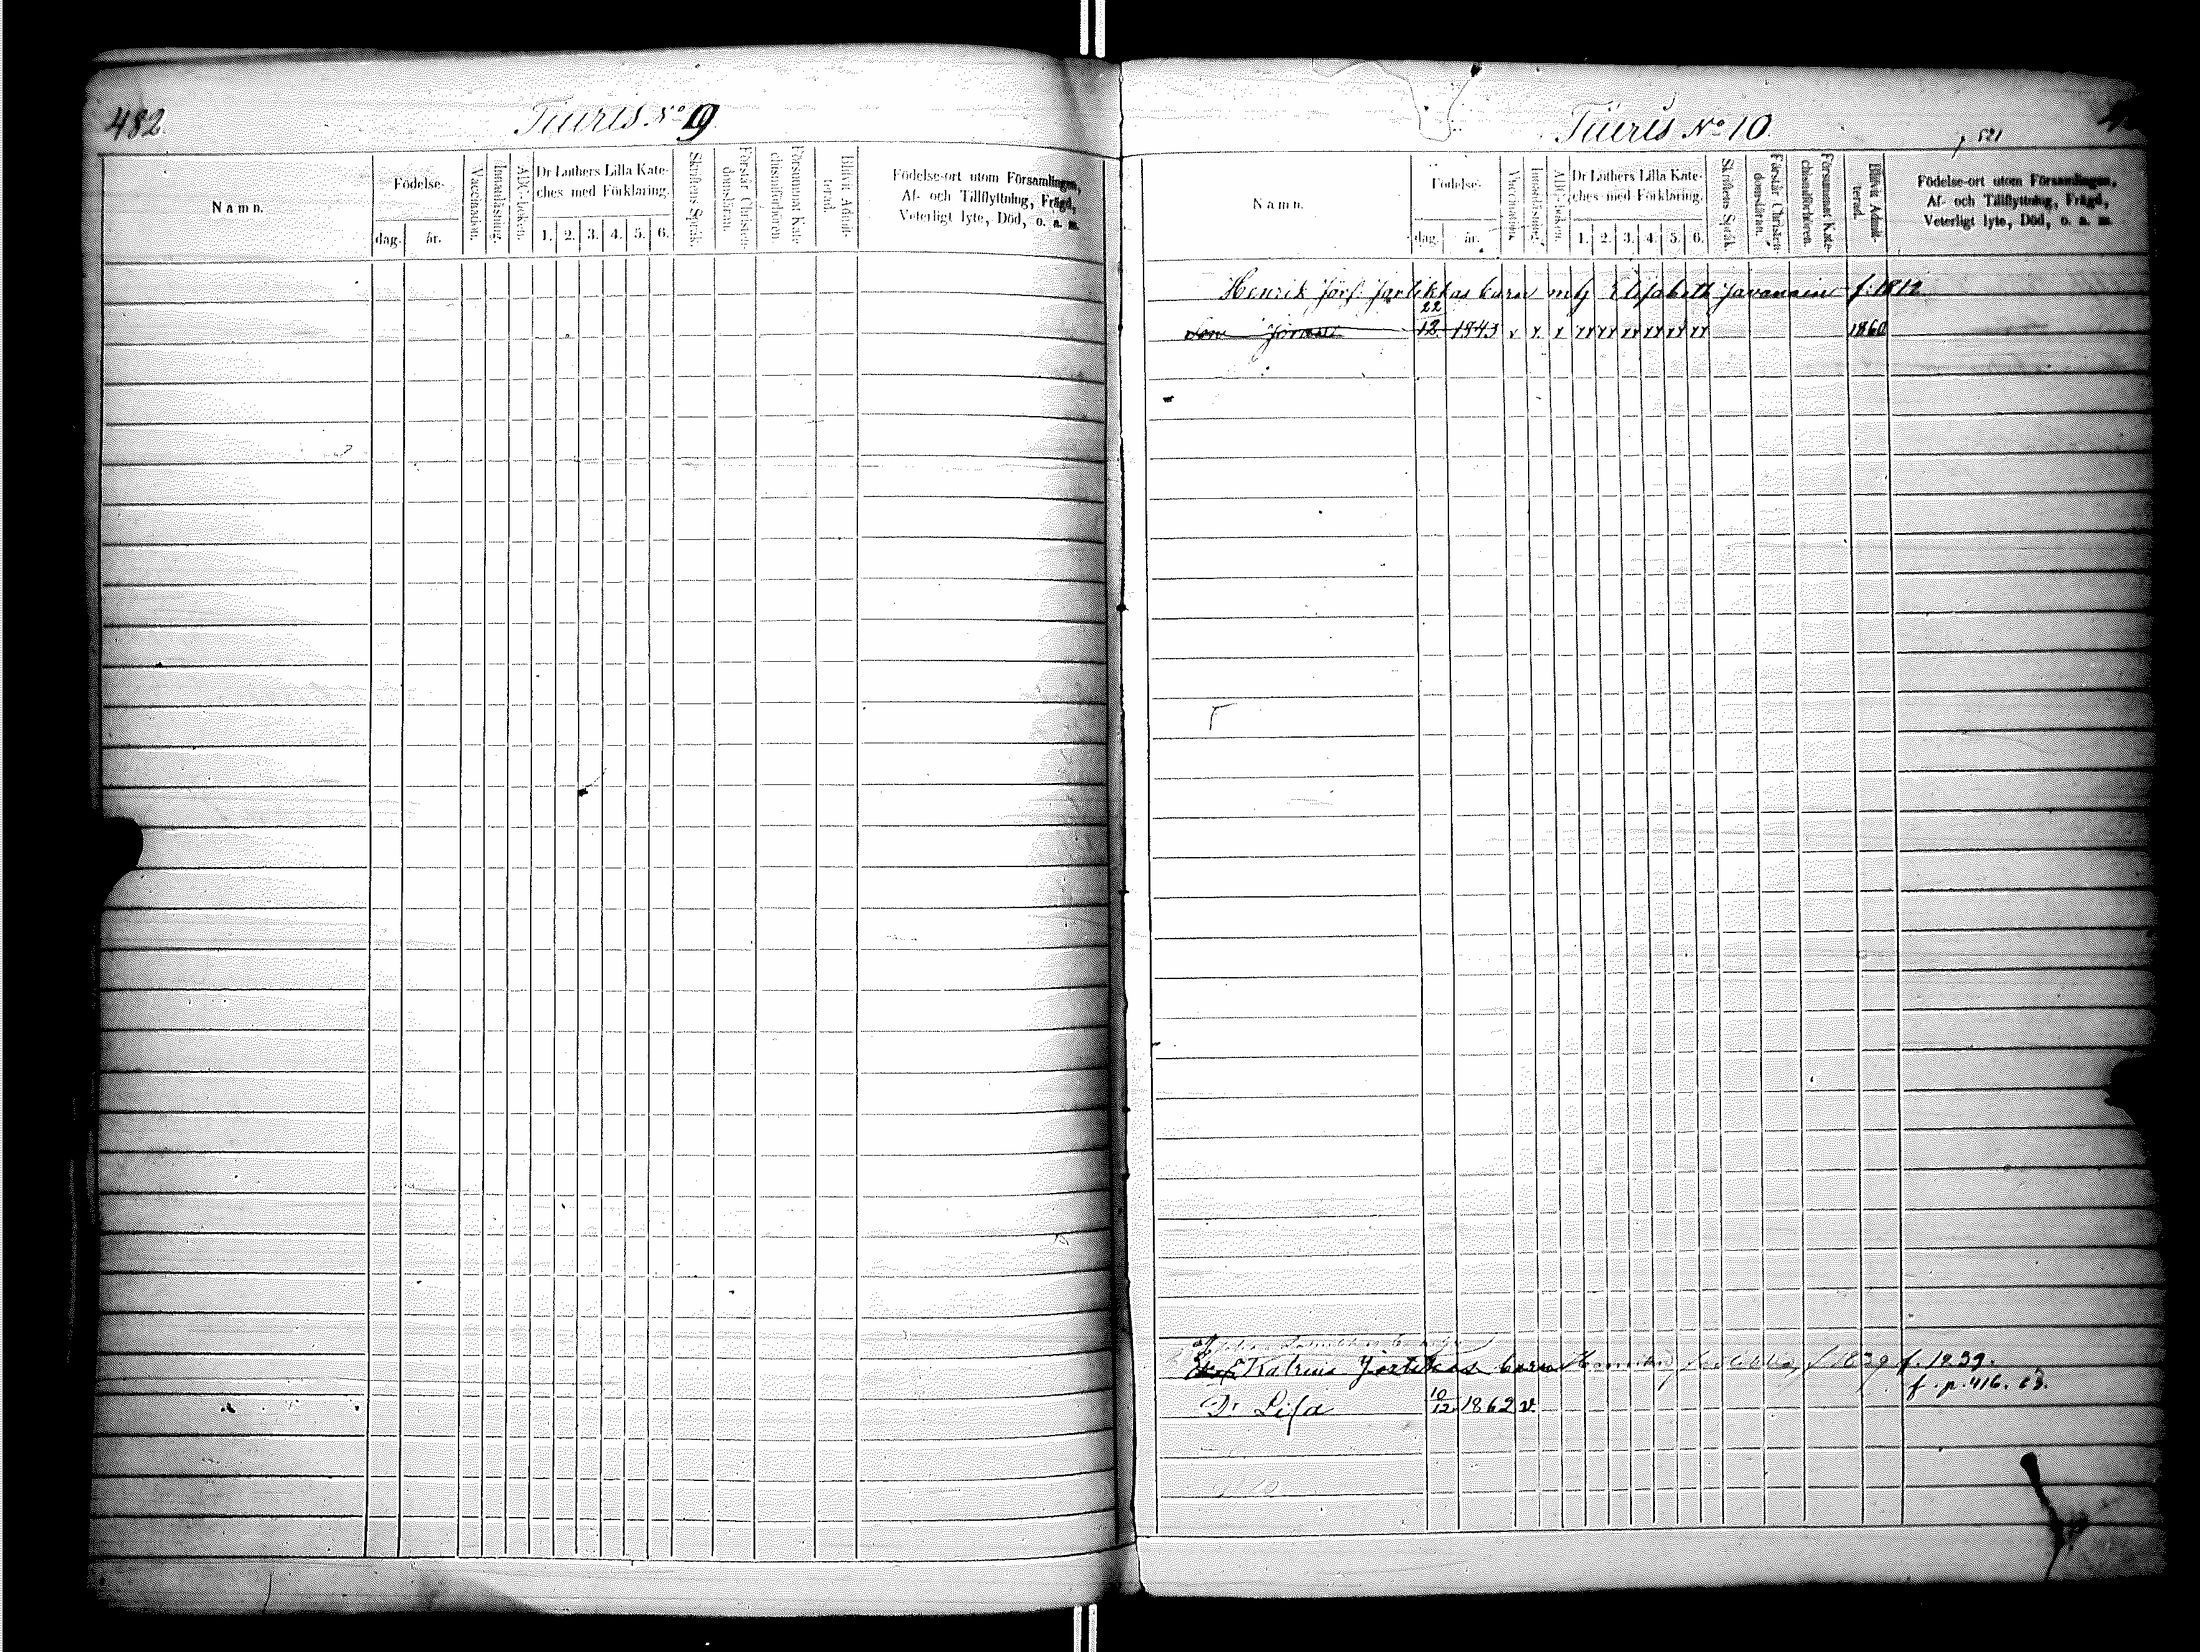 482
Tiuris No 9
Namn.
Födelse-
dag.
år.
Vaccination.
Innanläsning.
ABC-boken.
Dr Luthers Lilla Kate-
ches med Förklaring.
1. 2. 3. 4. 5. 6.
Skriftens Språk.
Förstår Christen-
domsläran.
Försummat Kate-
chismiförhören.
Blifvit Admit-
terad.
Födelse-ort utom Församlingen,
Af- och Tillflyttning, Frägd,
Veterligt lyte, Död, o. a. m.
Tiuris No 10.
p. 521
Namn.
Födelse-
dag.
år.
Vaccination.
Innanläsning.
ABC-boken.
Dr Luthers Lilla Kate-
ches med Förklaring.
1. 2. 3. 4. 5. 6.
Skriftens Språk.
Förstår Christen-
domsläran.
Försummat Kate-
chismiförhören.
Blifvit Admit-
terad.
Födelse-ort utom Församlingen,
Af- och Tillflyttning, Frägd,
Veterligt lyte, Död, o. a. m.
Henrik barn m. Elisabeth Javanain f. 1812
son 22/12 1843 x x x xx xx xx xx xx xx 1860
Katrina barn f. 1839.
f. p. 416.
Dr Lisa 10/12 1862 v.